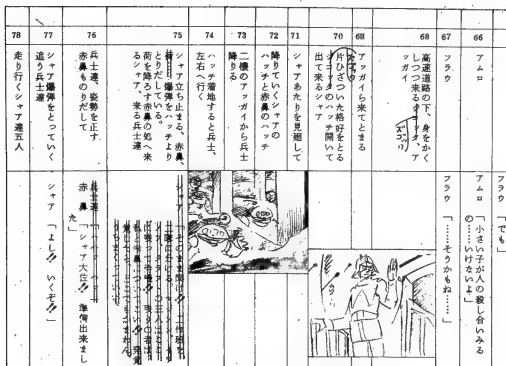 フラウ 「でも」
66
アムロ
アムロ 「小さい子が人の殺し合いみる
の……いけないよ」
67
フラウ
フラウ 「……そうかもね……」
68
高速道路の下、身をかく
しつつ来る
ッガイ
ズゴッ!!
69
アッガイら来てとまる
70
片ひざついた格好をとる
のハッチ開いて
出て来るシャア
71
シャアあたりを見廻して
72
降りていくシャアの
ハッチと赤鼻のハッチ
73
二機のアッガイから兵士
降りる
74
ハッチ着地すると兵士、
左右へ行く
75
シャア立ち止まる、赤鼻、
爆弾をハッチより
とりだしている。
荷を降ろす赤鼻の処へ来
るシャア、来る兵士達
シャア
76
兵士達、姿勢を正す
赤鼻ものりだして
兵士達
赤鼻 「シャア大佐!! 準備出来まし
た」
77
シャア爆弾をとっていく
追う兵士達
シャア 「よし!! いくぞ!!」
78
走り行くシャア達五人